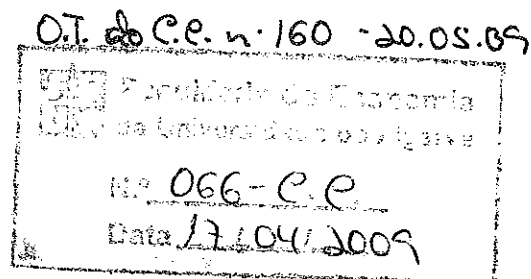 O.T. do C.C. n.º 160 - 20.05.09
Faculdade de Economia
da Universidade do Algarve
N.º 066-C.C.
Data 17/04/2009